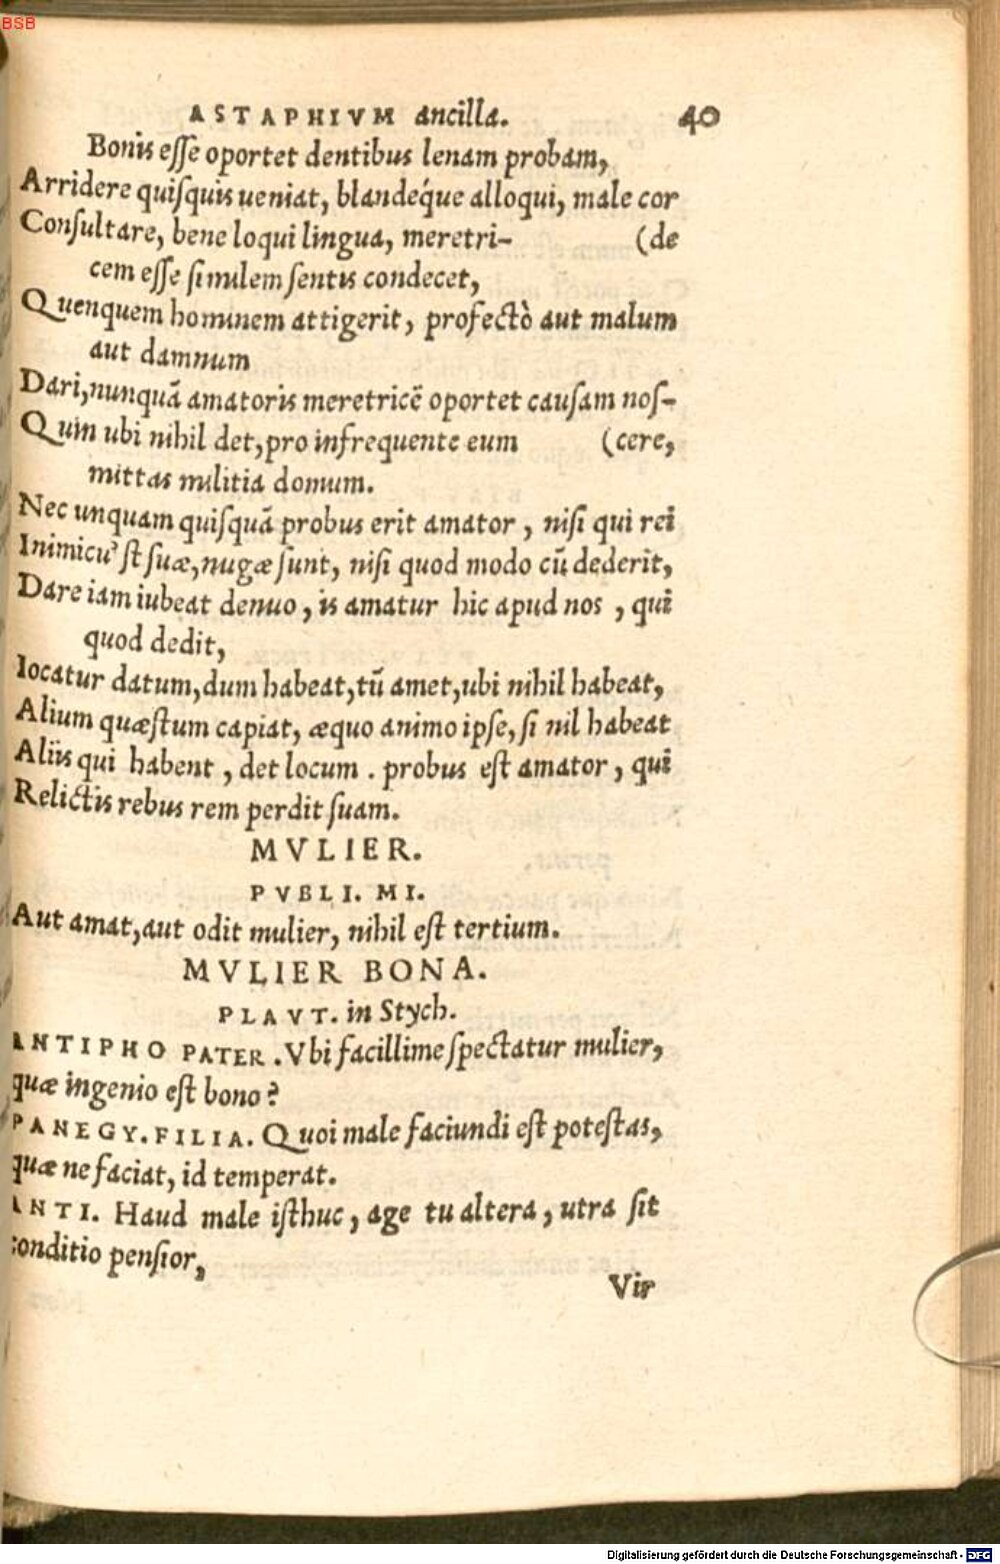 BSB
ASTAPHIVM ancilla. 40
Bonis eſſe oportet dentibus lenam probam,
Arridere quiſquis ueniat, blandéque alloqui, male cor
Conſultare, bene loqui lingua, meretri- (de
cem eſſe ſimilem ſentis condecet,
Quenquem hominem attigerit, profectò aut malum
aut damnum
Dari, nunquã amatoris meretricẽ oportet cauſam noſ-
Quin ubi nihil det, pro infrequente eum (cere,
mittas militia domum.
Nec unquam quiſquã probus erit amator, niſi qui rei
Inimicu' ſt ſuæ, nugæ ſunt, niſi quod modo cũ dederit,
Dare iam iubeat denuo, is amatur hic apud nos, qui
quod dedit,
Iocatur datum, dum habeat, tũ amet, ubi nihil habeat,
Alium quæſtum capiat, æquo animo ipſe, ſi nil habeat
Aliis qui habent, det locum. probus eſt amator, qui
Relictis rebus rem perdit ſuam.
MVLIER.
PVBLI. MI.
Aut amat, aut odit mulier, nihil eſt tertium.
MVLIER BONA.
PLAVT. in Stych.
ANTIPHO PATER. Vbi facillime ſpectatur mulier,
quæ ingenio eſt bono?
PANEGY. FILIA. Quoi male faciundi eſt poteſtas,
quæ ne faciat, id temperat.
ANTI. Haud male iſthuc, age tu altera, utra ſit
conditio penſior,
Vir
Digitalisierung gefördert durch die Deutsche Forschungsgemeinschaft - DFG